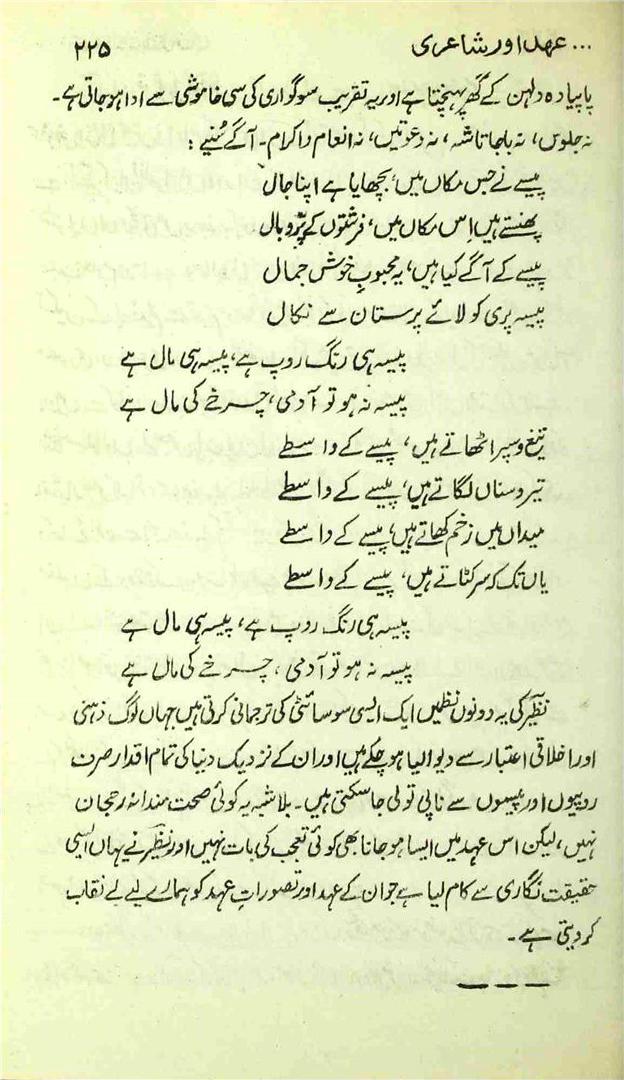 ... عہد اور شاعری ۲۲۵
پا پیادہ دلہن کے گھر پہنچتا ہے اور یہ تقریب سوگواری کی سی خاموشی سے ادا ہو جاتی ہے۔
نہ جلوس، نہ باجا تاشہ، نہ دعوتیں، نہ انعام و اکرام۔ آگے سُنیے:
پیسے نے جس مکاں میں، بچھایا ہے اپنا جال
پھنستے ہیں اِس مکاں میں، فرشتوں کے پَر و بال
پیسے کے آگے کیا ہیں، یہ محبوبِ خوش جمال
پیسہ پری کو لائے پرستان سے نکال
پیسہ ہی رنگ روپ ہے، پیسہ ہی مال ہے
پیسہ نہ ہو تو آدمی، چرخے کی مال ہے
تیغ و سپر اٹھاتے ہیں، پیسے کے واسطے
تیر و سناں لگاتے ہیں، پیسے کے واسطے
میداں میں زخم کھاتے ہیں، پیسے کے واسطے
یاں تک کہ سر کٹاتے ہیں، پیسے کے واسطے
پیسہ ہی رنگ روپ ہے، پیسہ ہی مال ہے
پیسہ نہ ہو تو آدمی، چرخے کی مال ہے
نظیرؔ کی یہ دونوں نظمیں ایک ایسی سوسائٹی کی ترجمانی کرتی ہیں جہاں لوگ ذہنی
اور اخلاقی اعتبار سے دیوالیا ہو چکے ہیں اور ان کے نزدیک دنیا کی تمام اقدار صرف
روپیوں اور پیسوں سے ناپی تولی جا سکتی ہیں۔ بلاشبہ یہ کوئی صحت مندانہ رجحان
نہیں، لیکن اس عہد میں ایسا ہو جانا بھی کوئی تعجب کی بات نہیں اور نظیرؔ نے یہاں ایسی
حقیقت نگاری سے کام لیا ہے جو ان کے عہد اور تصوراتِ عہد کو ہمارے لیے بے نقاب
کر دیتی ہے۔